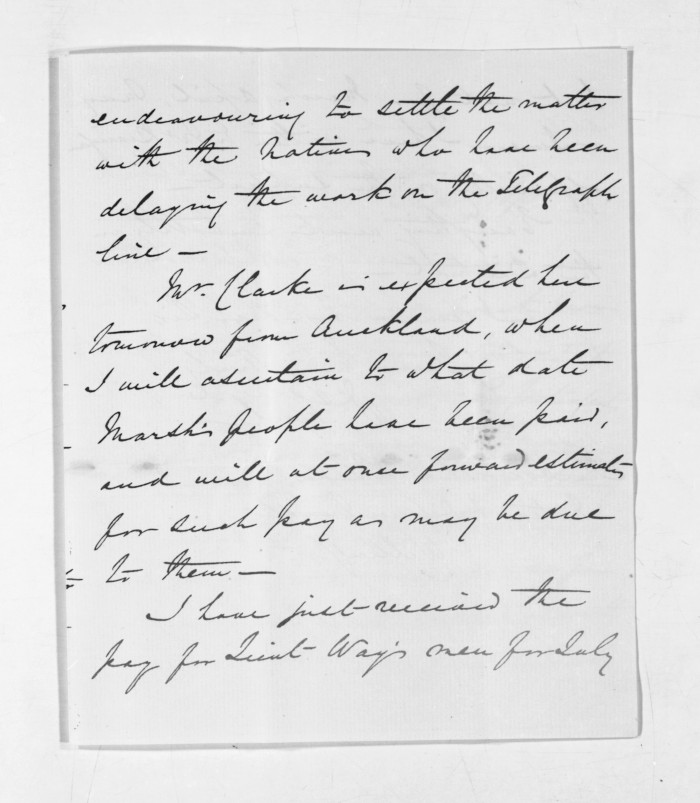 endeavouring to settle the matter
with the natives who have been
delaying the work on the Telegraph
line —
Mr. Clarke is expected here
tomorrow from Auckland, when
I will ascertain to what date
Marsh's people have been paid,
and will at once forward estimates
for such pay as may be due
to them —
I have just received the
pay for Lieut Way's men for July